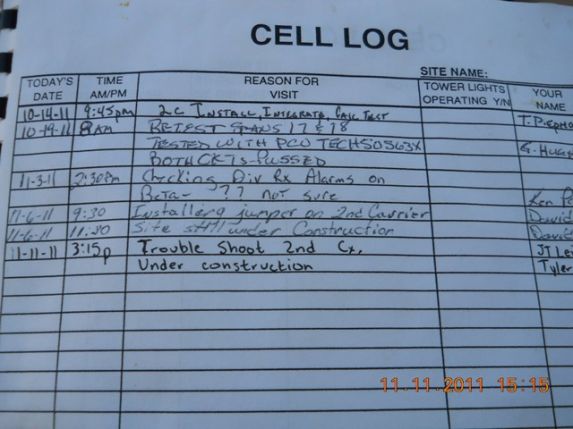 CELL LOG
SITE NAME:
TODAY'S DATE TIME AM/PM REASON FOR VISIT TOWER LIGHTS OPERATING Y/N YOUR NAME
10-14-11 9:45pm 2C INSTALL, INTEGRATE, CALL TEST
10-19-11 8AM RETEST SPANS 17 & 18
TESTED WITH PCU TECH
BOTH CKTS PASSED
11-3-11 2:30Pm Checking Div Rx Alarms on
Beta- ?? not sure Ken
11-6-11 9:30 Installing jumper on 2nd Carrier David
11-6-11 11:20 Site still under Construction David
11-11-11 3:15p Trouble Shoot 2nd Cx. JT
Under construction Tyler
11.11.2011 15:15